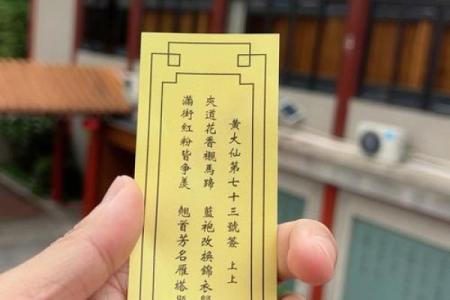 黃大仙第七十三號簽 上上
夾道花香襯馬蹄 藍袍改換錦衣
滿街紅粉皆爭羨 翹首芳名雁塔